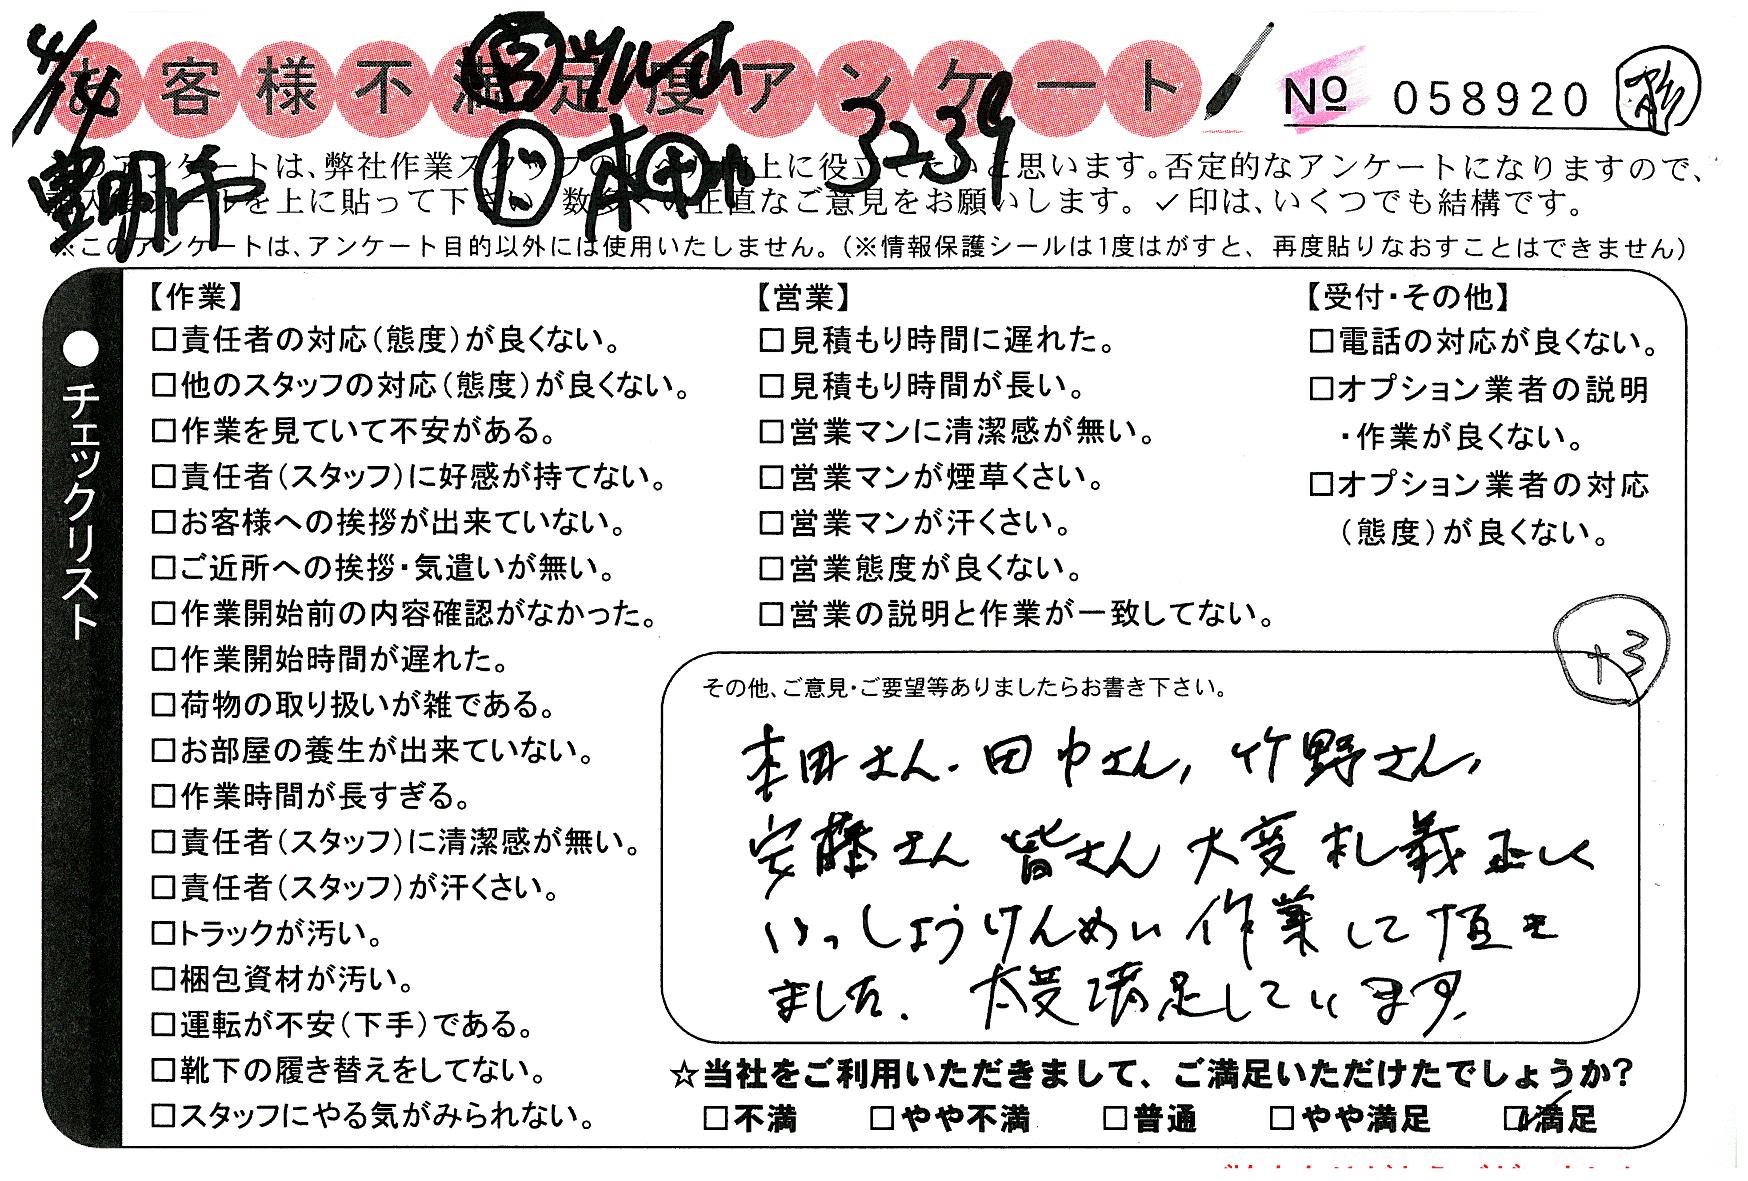 お客様不満足度アンケート
№ 058920
4/14
3239
豊明手
このアンケートは、弊社作業スタッフのレベル向上に役立てたいと思います。否定的なアンケートになりますので、
を上に貼って下さい。数多くの正直なご意見をお願いします。✓印は、いくつでも結構です。
※このアンケートは、アンケート目的以外には使用いたしません。(※情報保護シールは1度はがすと、再度貼りなおすことはできません)
●チェックリスト
【作業】
□責任者の対応(態度)が良くない。
□他のスタッフの対応(態度)が良くない。
□作業を見ていて不安がある。
□責任者(スタッフ)に好感が持てない。
□お客様への挨拶が出来ていない。
□ご近所への挨拶・気遣いが無い。
□作業開始前の内容確認がなかった。
□作業開始時間が遅れた。
□荷物の取り扱いが雑である。
□お部屋の養生が出来ていない。
□作業時間が長すぎる。
□責任者(スタッフ)に清潔感が無い。
□責任者(スタッフ)が汗くさい。
□トラックが汚い。
□梱包資材が汚い。
□運転が不安(下手)である。
□靴下の履き替えをしてない。
□スタッフにやる気がみられない。
【営業】
□見積もり時間に遅れた。
□見積もり時間が長い。
□営業マンに清潔感が無い。
□営業マンが煙草くさい。
□営業マンが汗くさい。
□営業態度が良くない。
□営業の説明と作業が一致してない。
【受付・その他】
□電話の対応が良くない。
□オプション業者の説明
・作業が良くない。
□オプション業者の対応
(態度)が良くない。
+3
その他、ご意見・ご要望等ありましたらお書き下さい。
本田さん、田中さん、竹野さん、
安藤さん 皆さん 大変 礼義正しく
いっしょうけんめい 作業して頂き
ました。大変満足しています。
☆当社をご利用いただきまして、ご満足いただけたでしょうか?
□不満 □やや不満 □普通 □やや満足 ☑満足